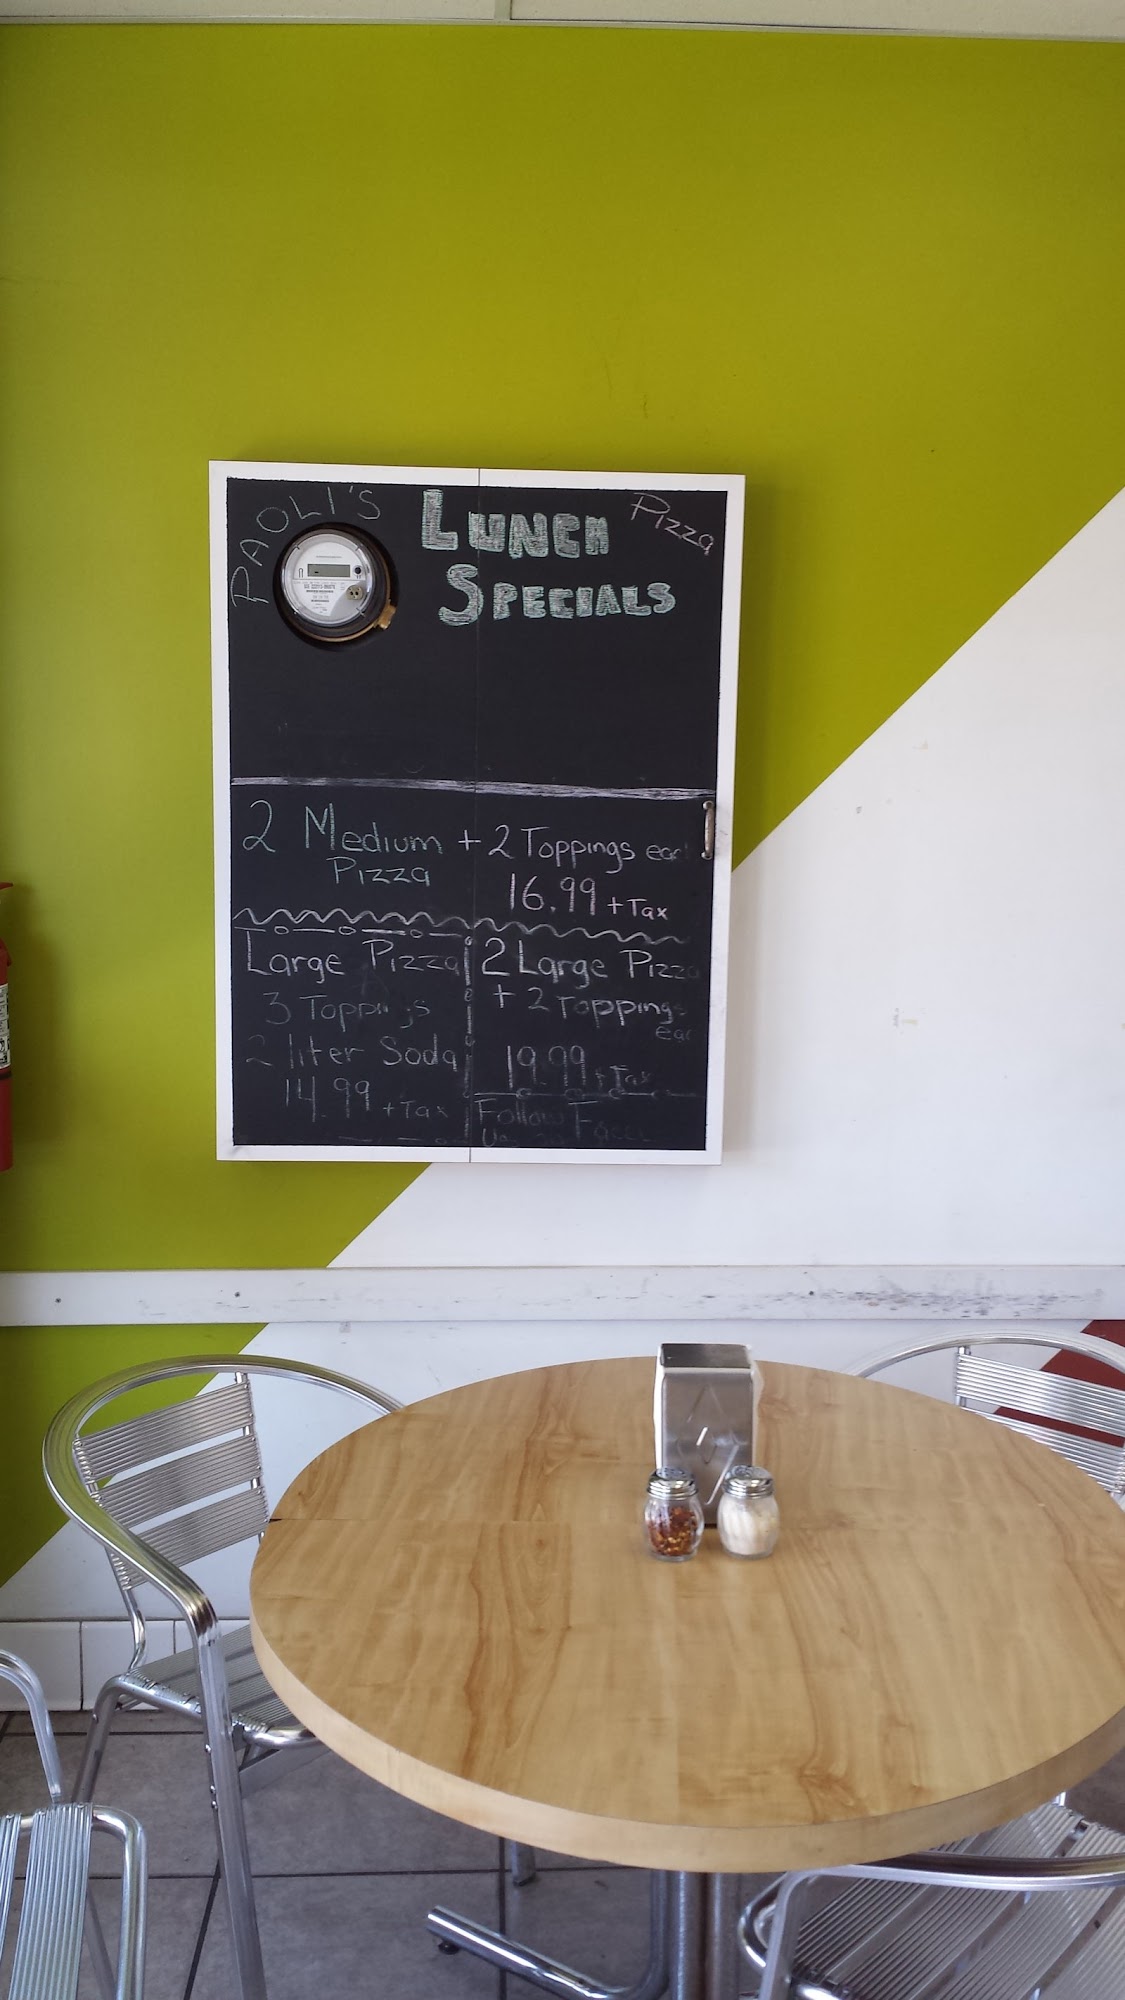 PAOLI'S
LUNCH
SPECIALS
Pizza
2 Medium + 2 Toppings
Pizza
16.99 + Tax
Large Pizza
3 Toppings
2 liter Soda
14.99 + Tax
2 Large Pizza
+ 2 Toppings
19.99 + Tax
Follow